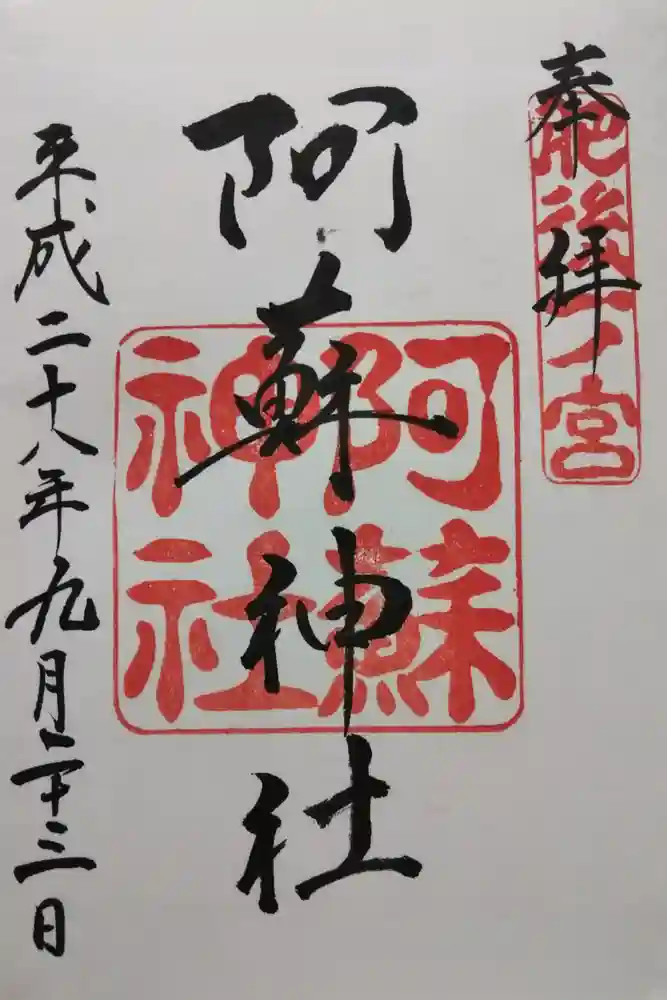 奉拝
肥後一ノ宮
阿蘇神社
阿蘇神社
平成二十八年九月二十三日